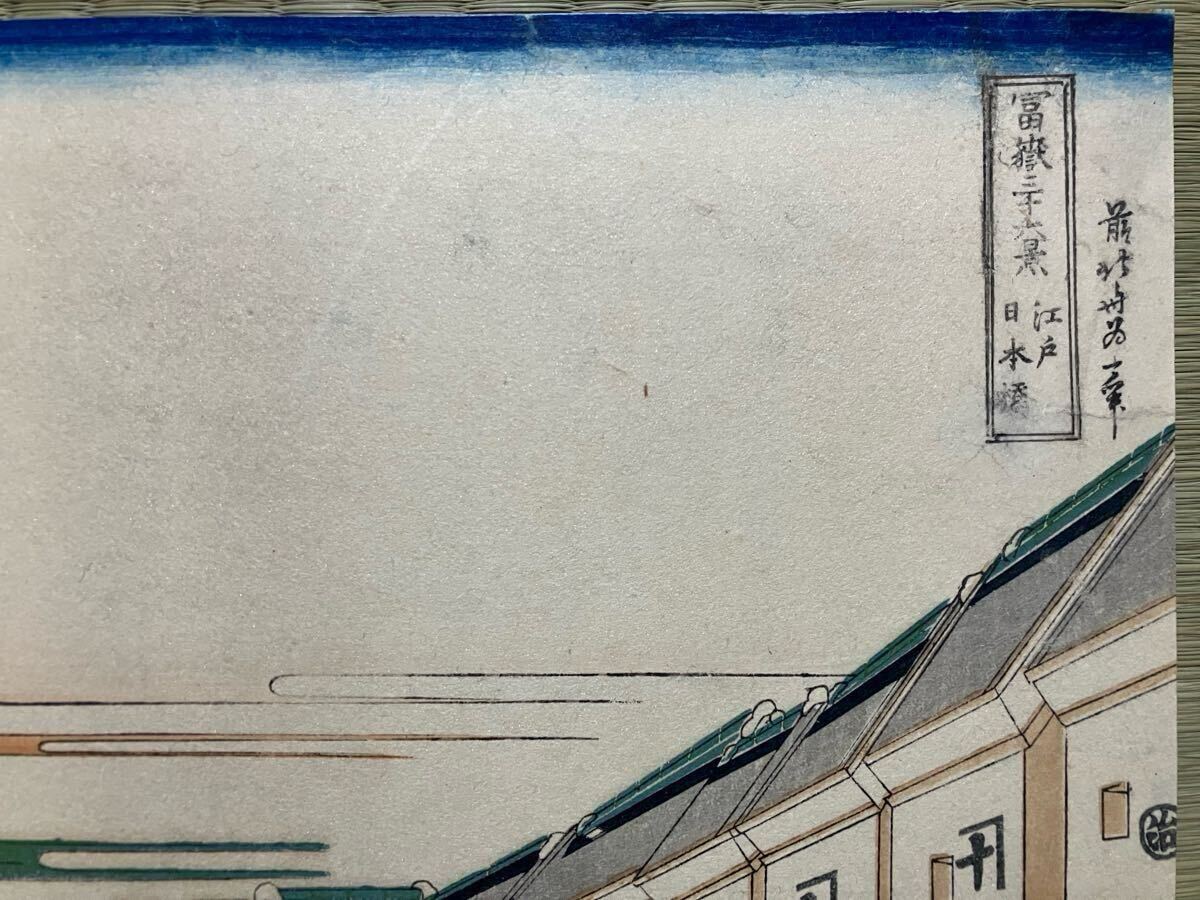 冨嶽三十六景
江戸
日本橋
前北斎為一筆
十
治